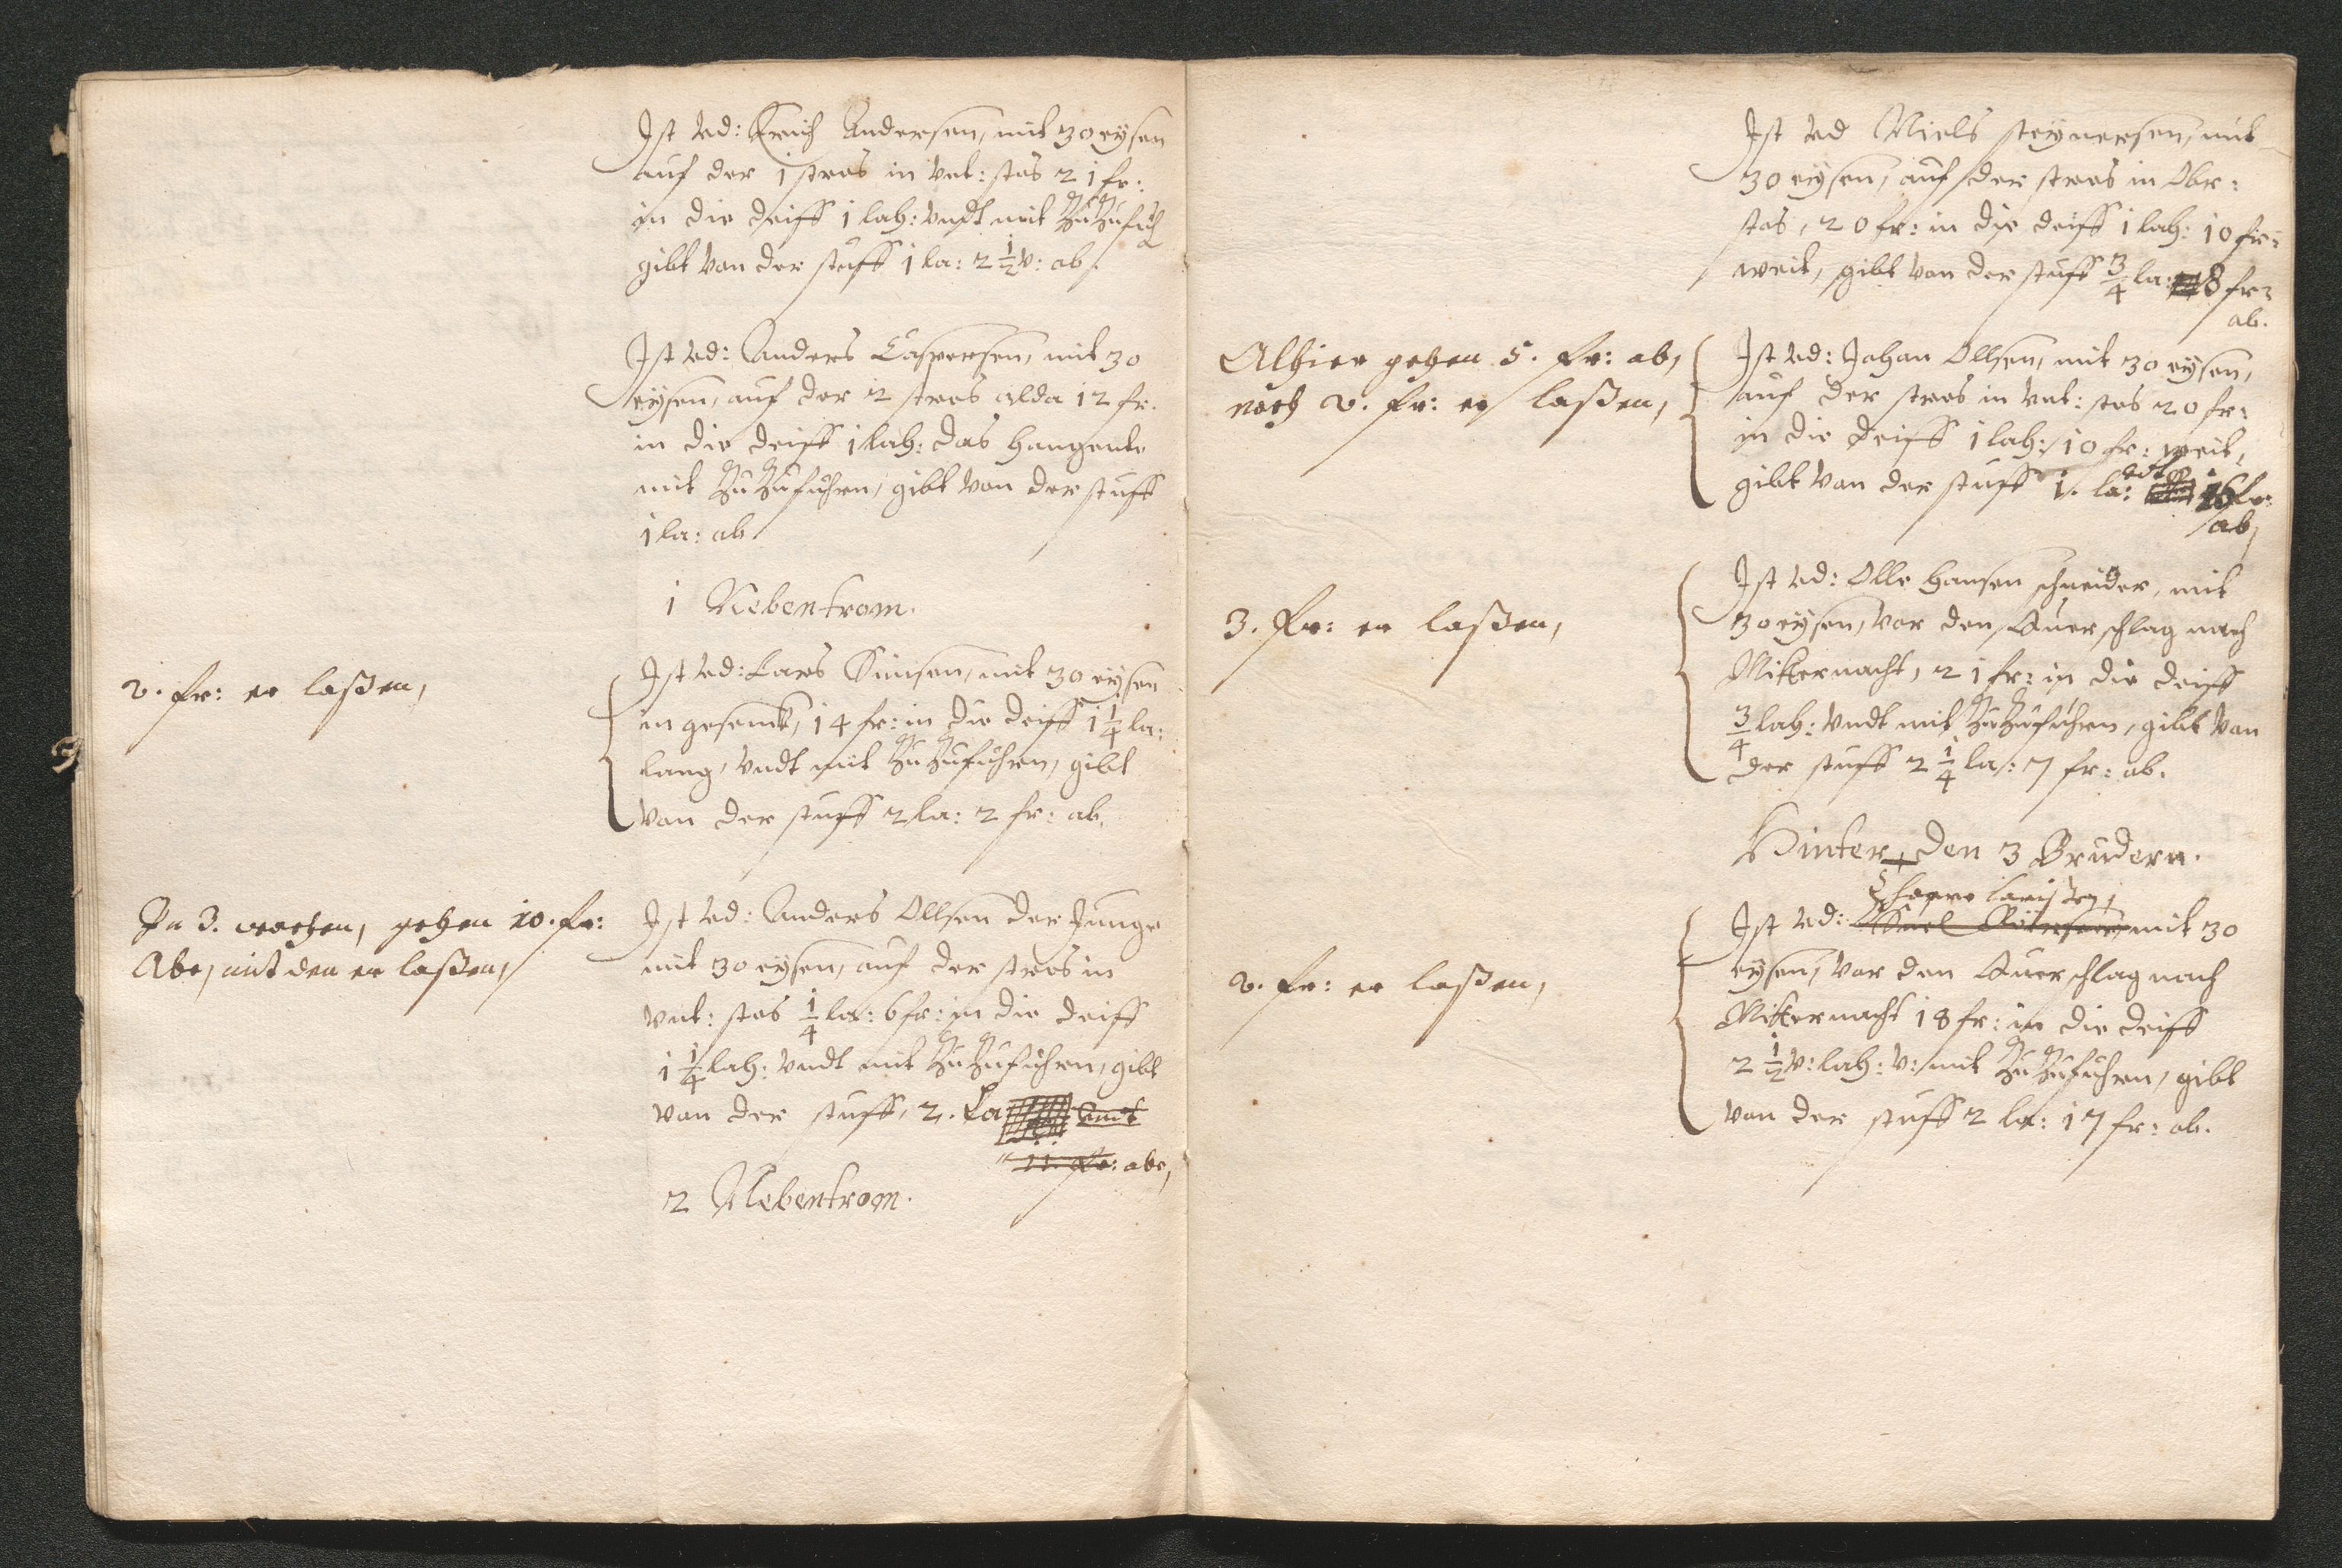 Ist vd: Erich Andersen, mit 30 eysen
auf der 1 stros in vnt: stos 21 fr:
in die deiff 1 lah: vndt mit Zu Zufüh
gibt von der stuff 1 la: 2 1/2 v: ab.
Ist vd: Anders Caspersen, mit 30
eysen, auf der 2 stros alda 12 fr.
in die deiff 1 lah: das hangente
mit Zu Zuführen, gibt von der stuff
1 la: ab
1 Nebentrom.
2. fr: er laßen,
Ist vd: Lars Simsen, mit 30 eysen
im gesenck, 14 fr: in die deiff 1 1/4 la:
lang, vndt mit Zu Zuführen, gibt
von der stuff 2 la: 2 fr: ab.
In 3. wochen, gehen 10. fr:
Abe, mit den er laßen,
Ist vd: Anders Ollsen der Junge
mit 30 eysen, auf der stros in
vnt: stos 1/4 la: 6 fr: in die deiff
1 1/4 lah: vndt mit Zu Zuführen, gibt
von der stuff, 2. La
11. fr: abe,
2 Nebentrom.
Ist vd Niels steynersen, mit
30 eysen, auf der stros in Obr:
stos, 20 fr: in die deiff 1 lah: 10 fr:
weit, gibt von der stuff 3/4 la: 8 fr:
ab.
Alhier gehen 5. fr: ab,
noch 2. fr: er laßen,
Ist vd: Johan Ollsen, mit 30 eysen,
auf der stros in vnt: stos 20 fr:
in die deiff 1 lah: 10 fr: weit,
gibt von der stuff 1. la: 16 fr:
ab,
3. fr: er laßen,
Ist vd: Olle Hansen schneider, mit
30 eysen, vor den Querschlag nach
Mitternacht, 21 fr: in die deiff
3/4 lah: vndt mit Zu Zuführen, gibt von
der stuff 2 1/4 la: 7 fr: ab.
Hinter den 3 Brudern.
2. fr: er laßen,
Ist vd: mit 30
eysen, vor den Querschlag nach
Mitternacht 18 fr: in die deiff
2 1/2 v: lah: v: mit Zu Zuführen, gibt
von der stuff 2 la: 17 fr: ab.